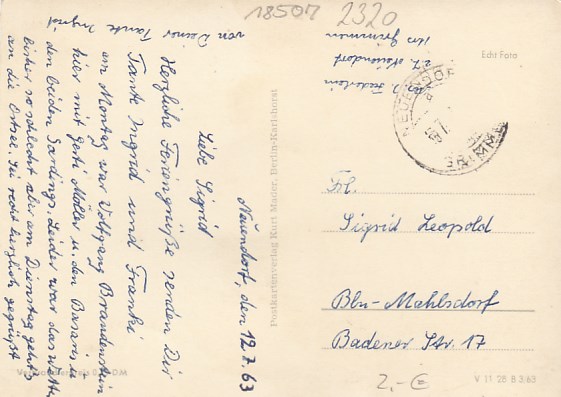 18507 2320
Echt Foto
Neuendorf, den 12.7.63
Liebe Sigrid
Herzliche Feriengrüße senden Dir
Tante Ingrid und Franki
am Montag war Wolfgang Brandenstein
hier mit Gerti Möller u. den
den beiden Leider war das
bisher so schlecht aber am Dienstag geht's
an die Ostsee. Sei recht herzlich gegrüßt
von Deiner Tante Ingrid
Neuendorf
Krs Grimmen
NEUENDORF
GRIMMEN
Postkartenverlag Kurt Mader, Berlin-Karlshorst
Frl.
Sigrid Leopold
Bln-Mahlsdorf
Badener Str. 17
2,-€
V 11 28 B 3/63